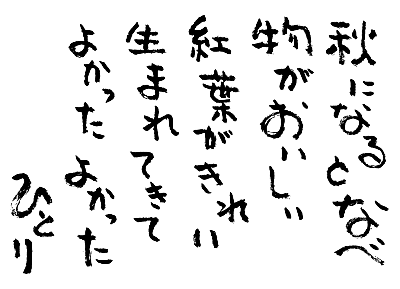 秋になるとなべ
物がおいしい
紅葉がきれい
生まれてきて
よかった よかった
ひとり